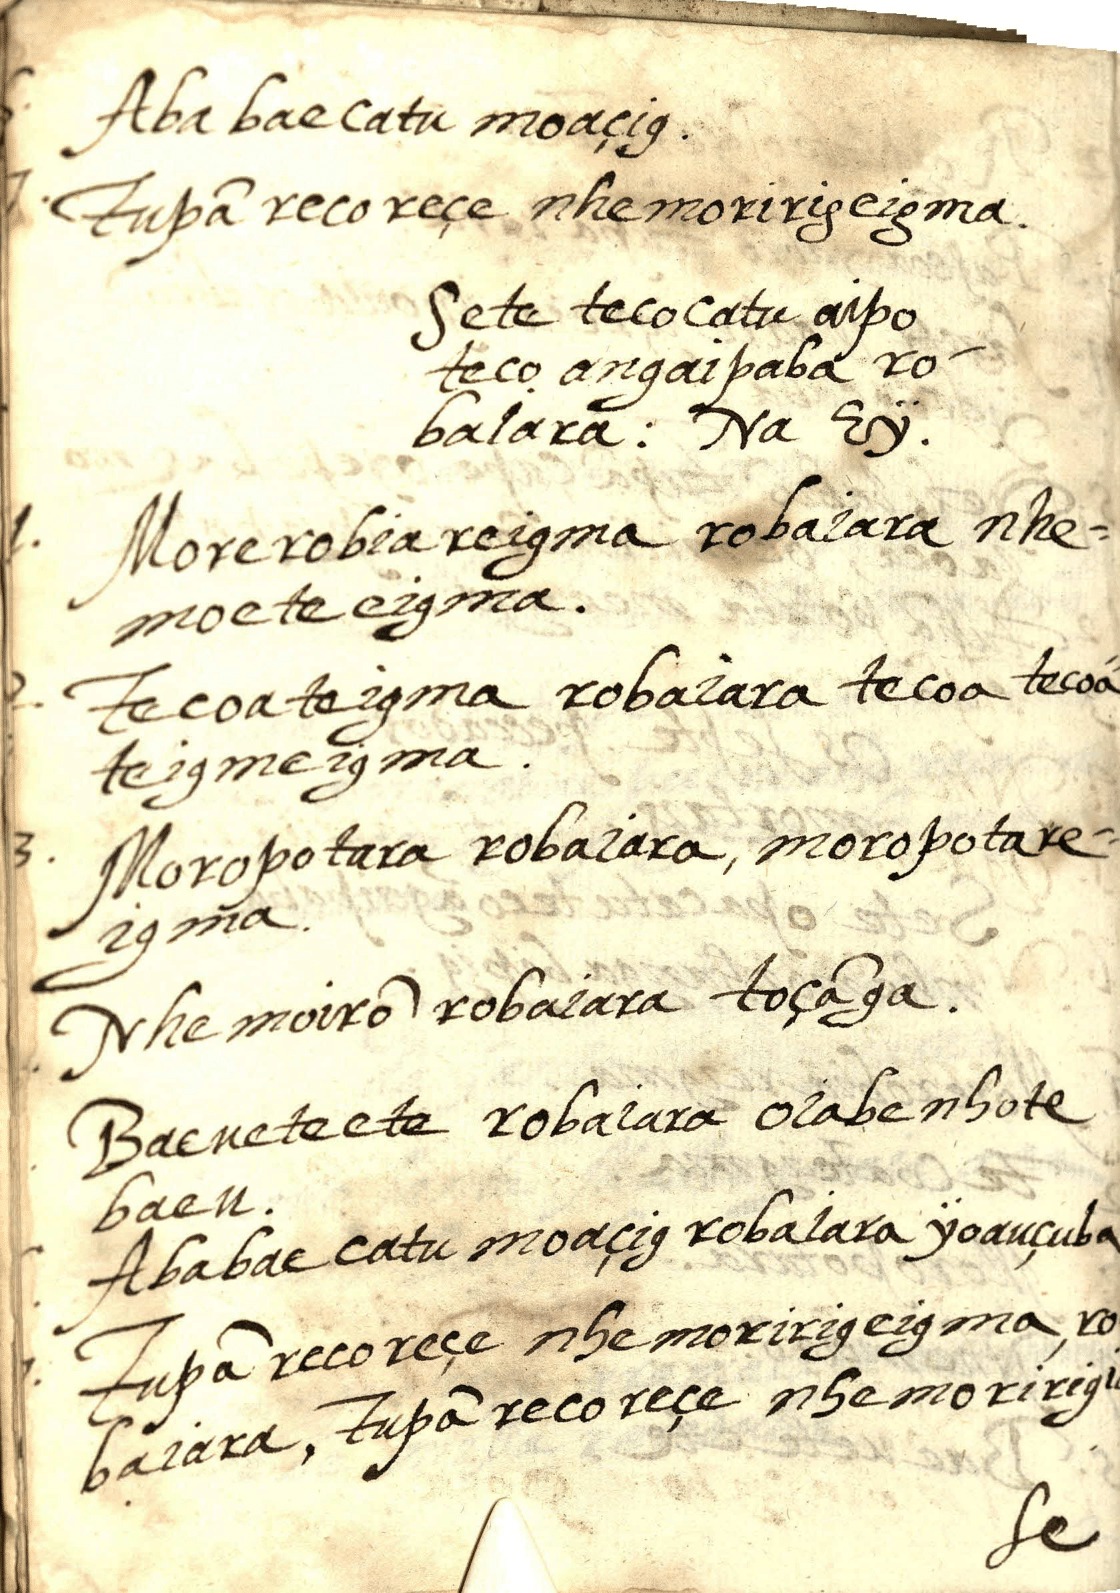 Aba bae catu moaçig.
7. Tupã recoreçe nhemoririgeigma.
Sete tecocatu aipo
teco angaipaba ro-
baiara: Na Eÿ.
1. Morerobiareigma robaiara nhe=
moeteeigma.
2. Tecoateigma robaiara tecoa tecoá
teigmeigma.
3. Moropotara robaiara, moropotare-
igma.
Nhemoirõ robaiara toçãga.
Baeueteete robaiara oiabenhote
baeu.
Ababae catu moaçig robaiara ÿoauçuba
Tupã recoreçe nhemoririgeigma, ro
baiara, Tupã recoreçe nhemoririg
Se